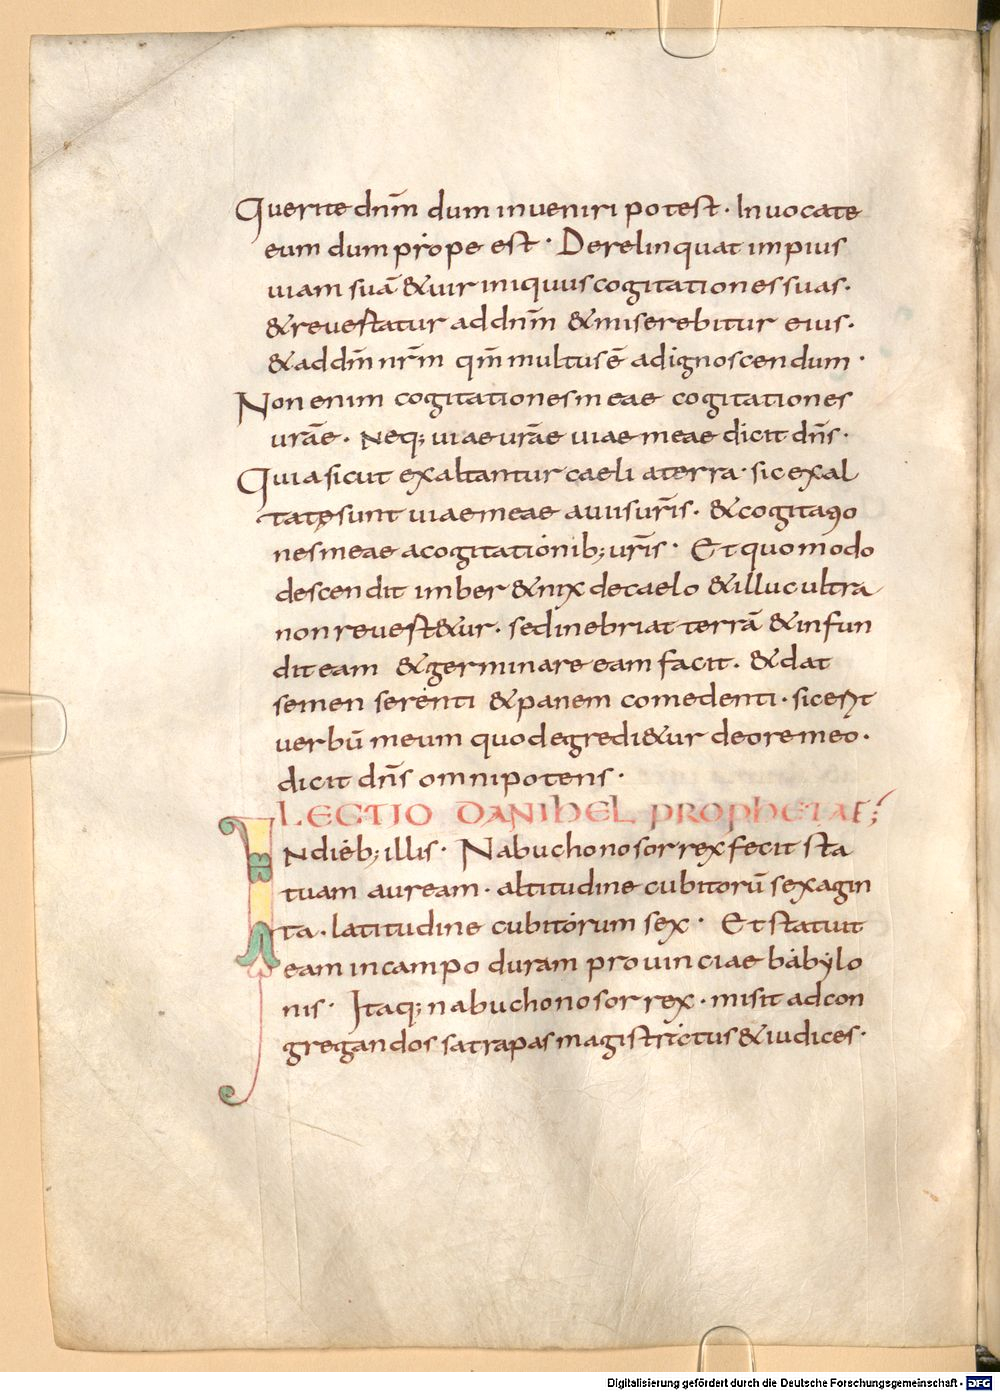 Querite dnm̄ dum inueniri potest · Inuocate
eum dum prope est · Derelinquat impius
uiam suā & uir iniquus cogitationes suas ·
& reuertatur ad dnm̄ & miserebitur eius ·
& ad dm̄ nr̄m qm̄ multus ē ad ignoscendum ·
Non enim cogitationes meae cogitationes
urāe · Neq; uiae urāe uiae meae dicit dn̄s ·
Quia sicut exaltantur caeli a terra · sic exal
tatę sunt uiae meae a uiis ur̄is · & cogitatio
nes meae a cogitationib; ur̄is · Et quomodo
descendit imber & nix de caelo & illuc ultra
non reuert&ur · sed inebriat terrā & infun
dit eam & germinare eam facit · & dat
semen serenti & panem comedenti · sic erit
uerbū meum quod egredi&ur de ore meo ·
dicit dn̄s omnipotens ·
LECTIO DANIHEL PROPHETAE;
In dieb; illis · Nabuchonosor rex fecit sta
tuam auream · altitudine cubitorū sexagin
ta · latitudine cubitorum sex · Et statuit
eam in campo duram prouinciae babylo
nis · Itaq; nabuchonosor rex · misit ad con
gregandos satrapas magistrictus & iudices ·
Digitalisierung gefördert durch die Deutsche Forschungsgemeinschaft - DFG